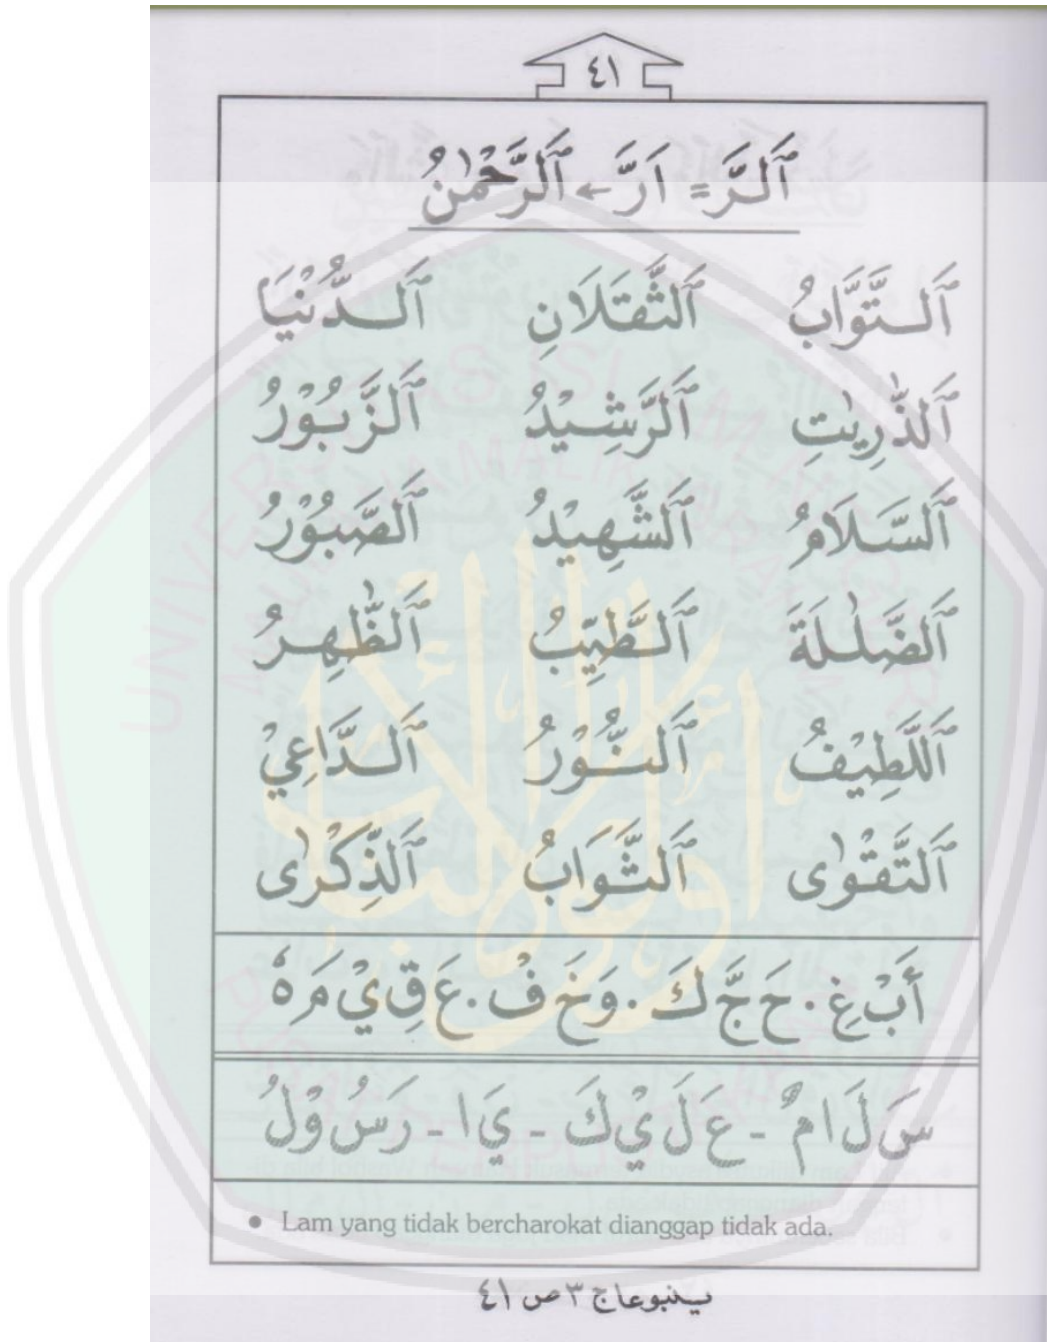 ٤١
اَلرَّ = اَرَّ ← اَلرَّحْمٰنُ
اَلتَّوَّابُ اَلثَّقَلَانِ اَلدُّنْيَا
اَلذّٰرِيٰتِ اَلرَّشِيْدُ اَلزَّبُوْرُ
اَلسَّلَامُ اَلشَّهِيْدُ اَلصَّبُوْرُ
اَلضَّلٰلَةَ اَلطَّيِّبُ اَلظّٰهِرُ
اَللَّطِيْفُ اَلنُّوْرُ اَلدَّاعِيْ
اَلتَّقْوٰى اَلثَّوَابُ اَلذِّكْرٰى
أَبْ غِ . حَ جَّ كَ . وَ خَ فْ . عَ قِ يْ مَ هْ
سَ لَ ا مٌ - عَ لَ يْ كَ - يَ ا - رَ سُ وْ لُ
• Lam yang tidak bercharokat dianggap tidak ada.
ينبوعا ج ٣ ص ٤١